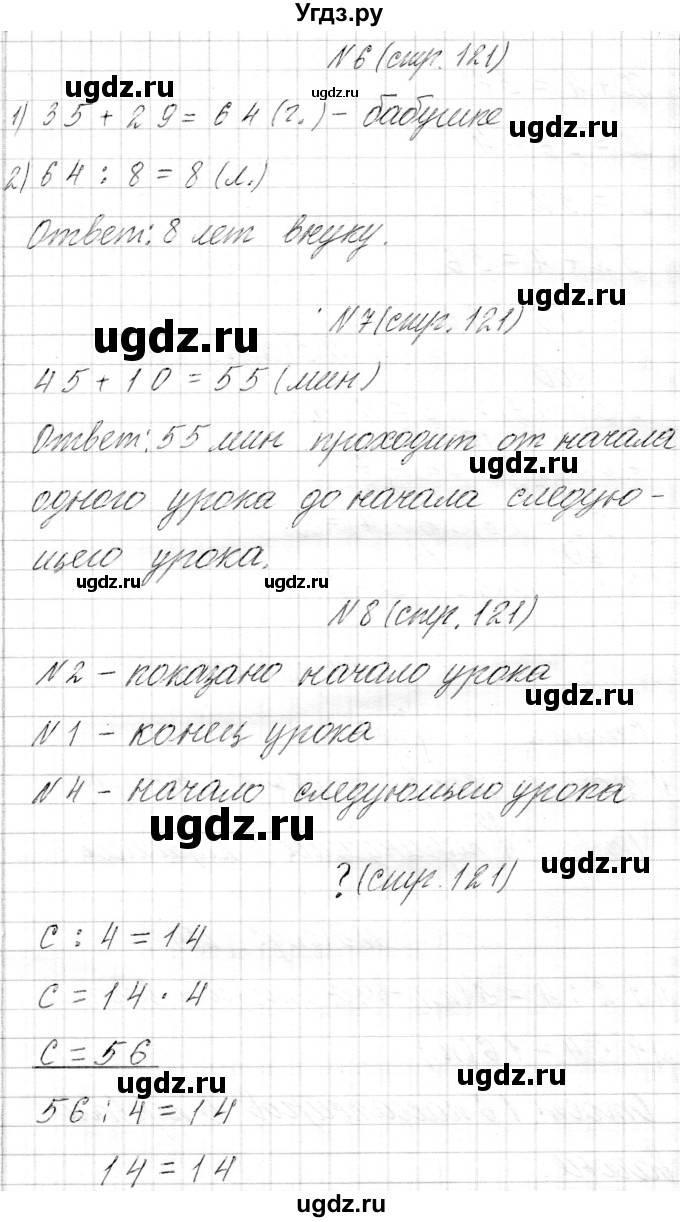 Угдз.ру
N6 (стр. 121)
ugdz.ru ugdz.ru
1) 35 + 29 = 64 (г.) - бабушке
ugdz.ru
2) 64 : 8 = 8 (л.)
Ответ: 8 лет внуку.
ugdz.ru
N7 (стр. 121)
ugdz.ru
45 + 10 = 55 (мин)
Ответ: 55 мин проходит от начала
ugdz.ru
одного урока до начала следую-
щего урока.
ugdz.ru ugdz.ru
N8 (стр. 121)
N2 - показано начало урока
ugdz.ru
N1 - конец урока
N4 - начало следующего урока
ugdz.ru
ugdz.ru
? (стр. 121)
с : 4 = 14
с = 14 · 4
с = 56
ugdz.ru ugdz.ru
56 : 4 = 14
14 = 14
ugdz.ru